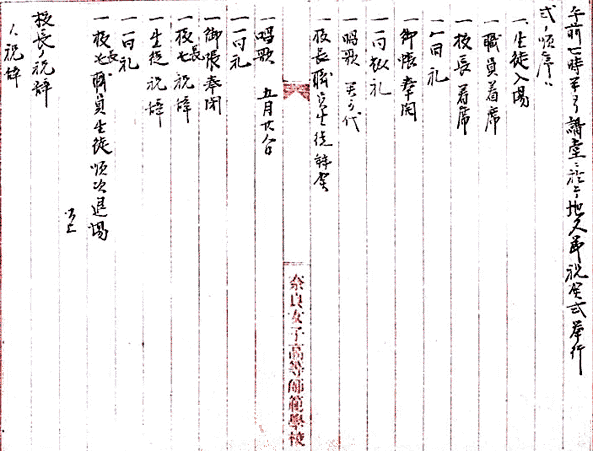 午前七時半ヨリ講堂ニ於テ地久節祝賀式挙行
式ノ順序ハ
一、生徒入場
一 職員着席
一 校長着席
一 一同礼
一 御帳奉開
一 一同敬礼
一 唱歌 君が代
一 校長職員生徒拝賀
奈良女子高等師範學校
一 唱歌 五月廿八日
一 一同礼
一 御帳奉閉
一 校長祝辞
一 生徒祝辞
一 一同礼
一 校長職員生徒順次退場
以上
校長ノ祝辞
祝辞